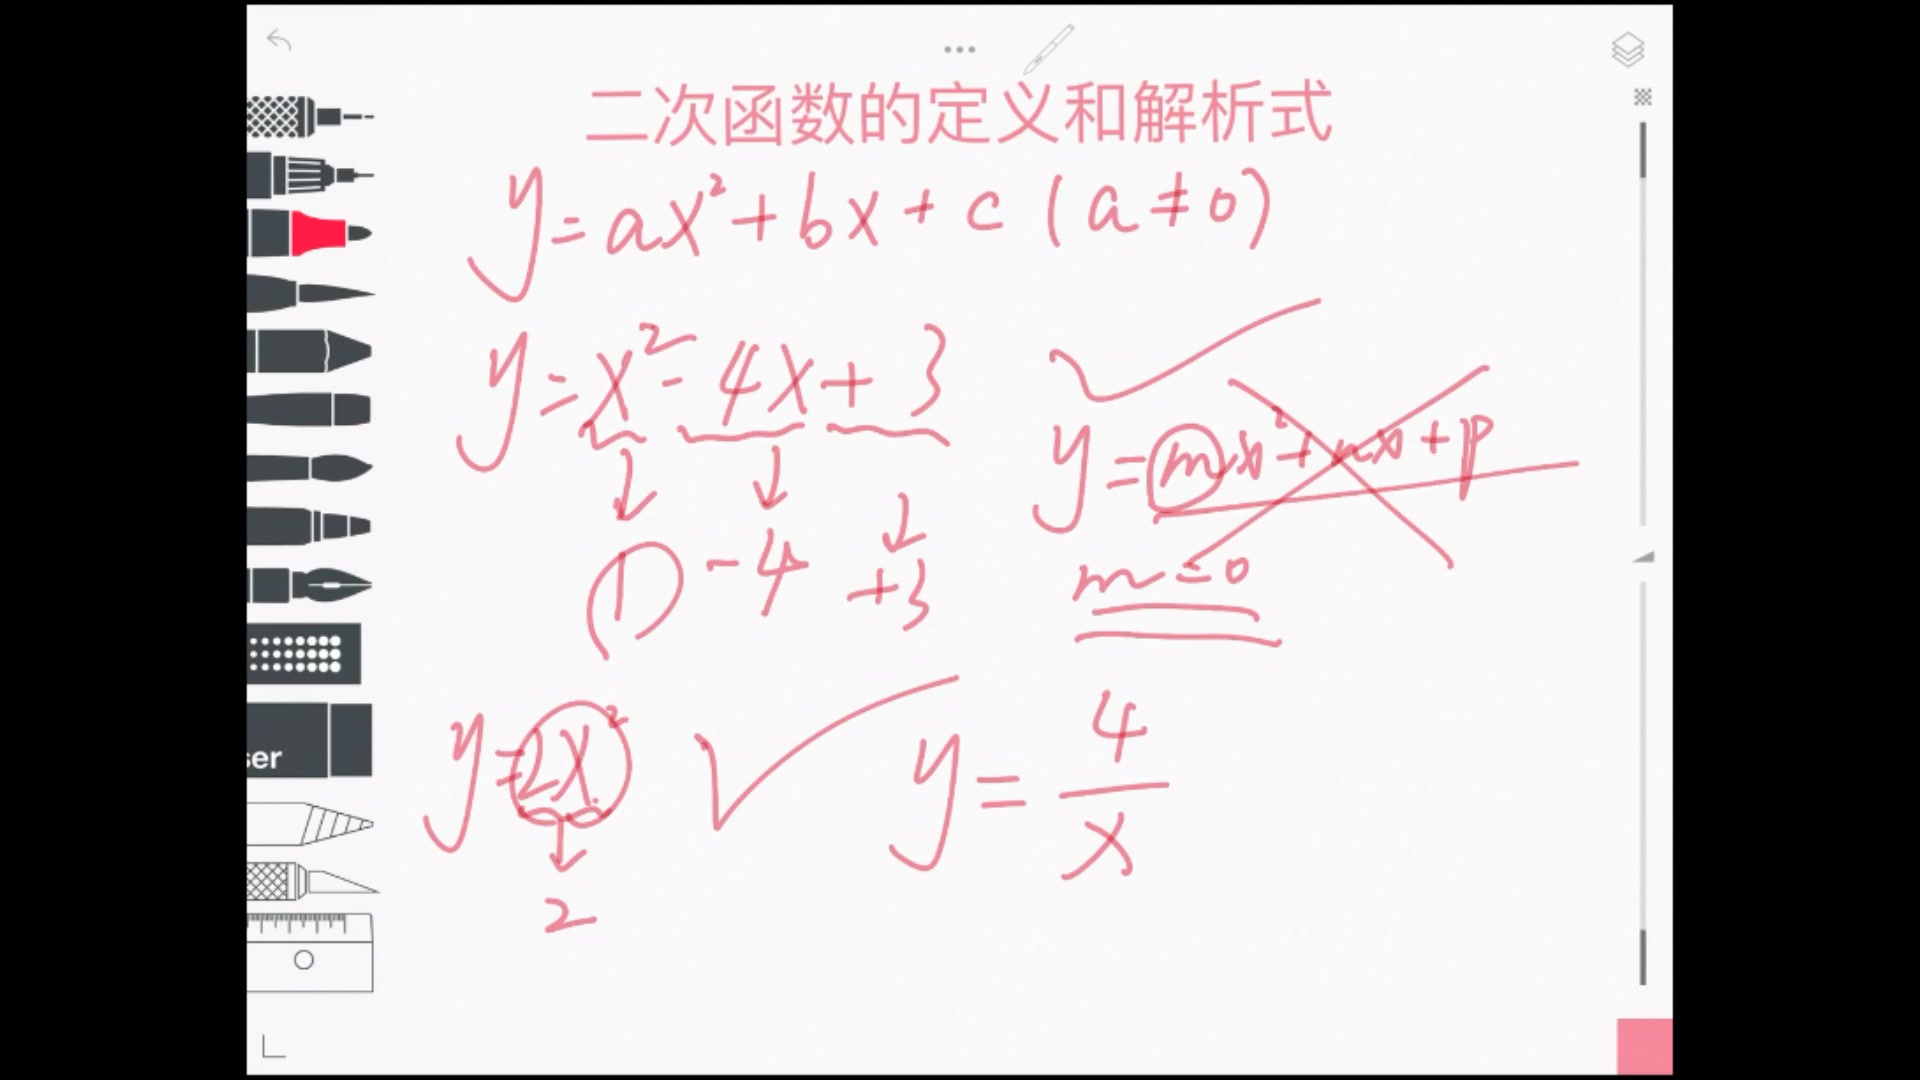 二次函数的定义和解析式
y=ax²+bx+c (a≠0)
y=x²-4x+3
y=mx²+nx+p
1 -4 +3
m=0
y=2x²
y=4/x
2
ser